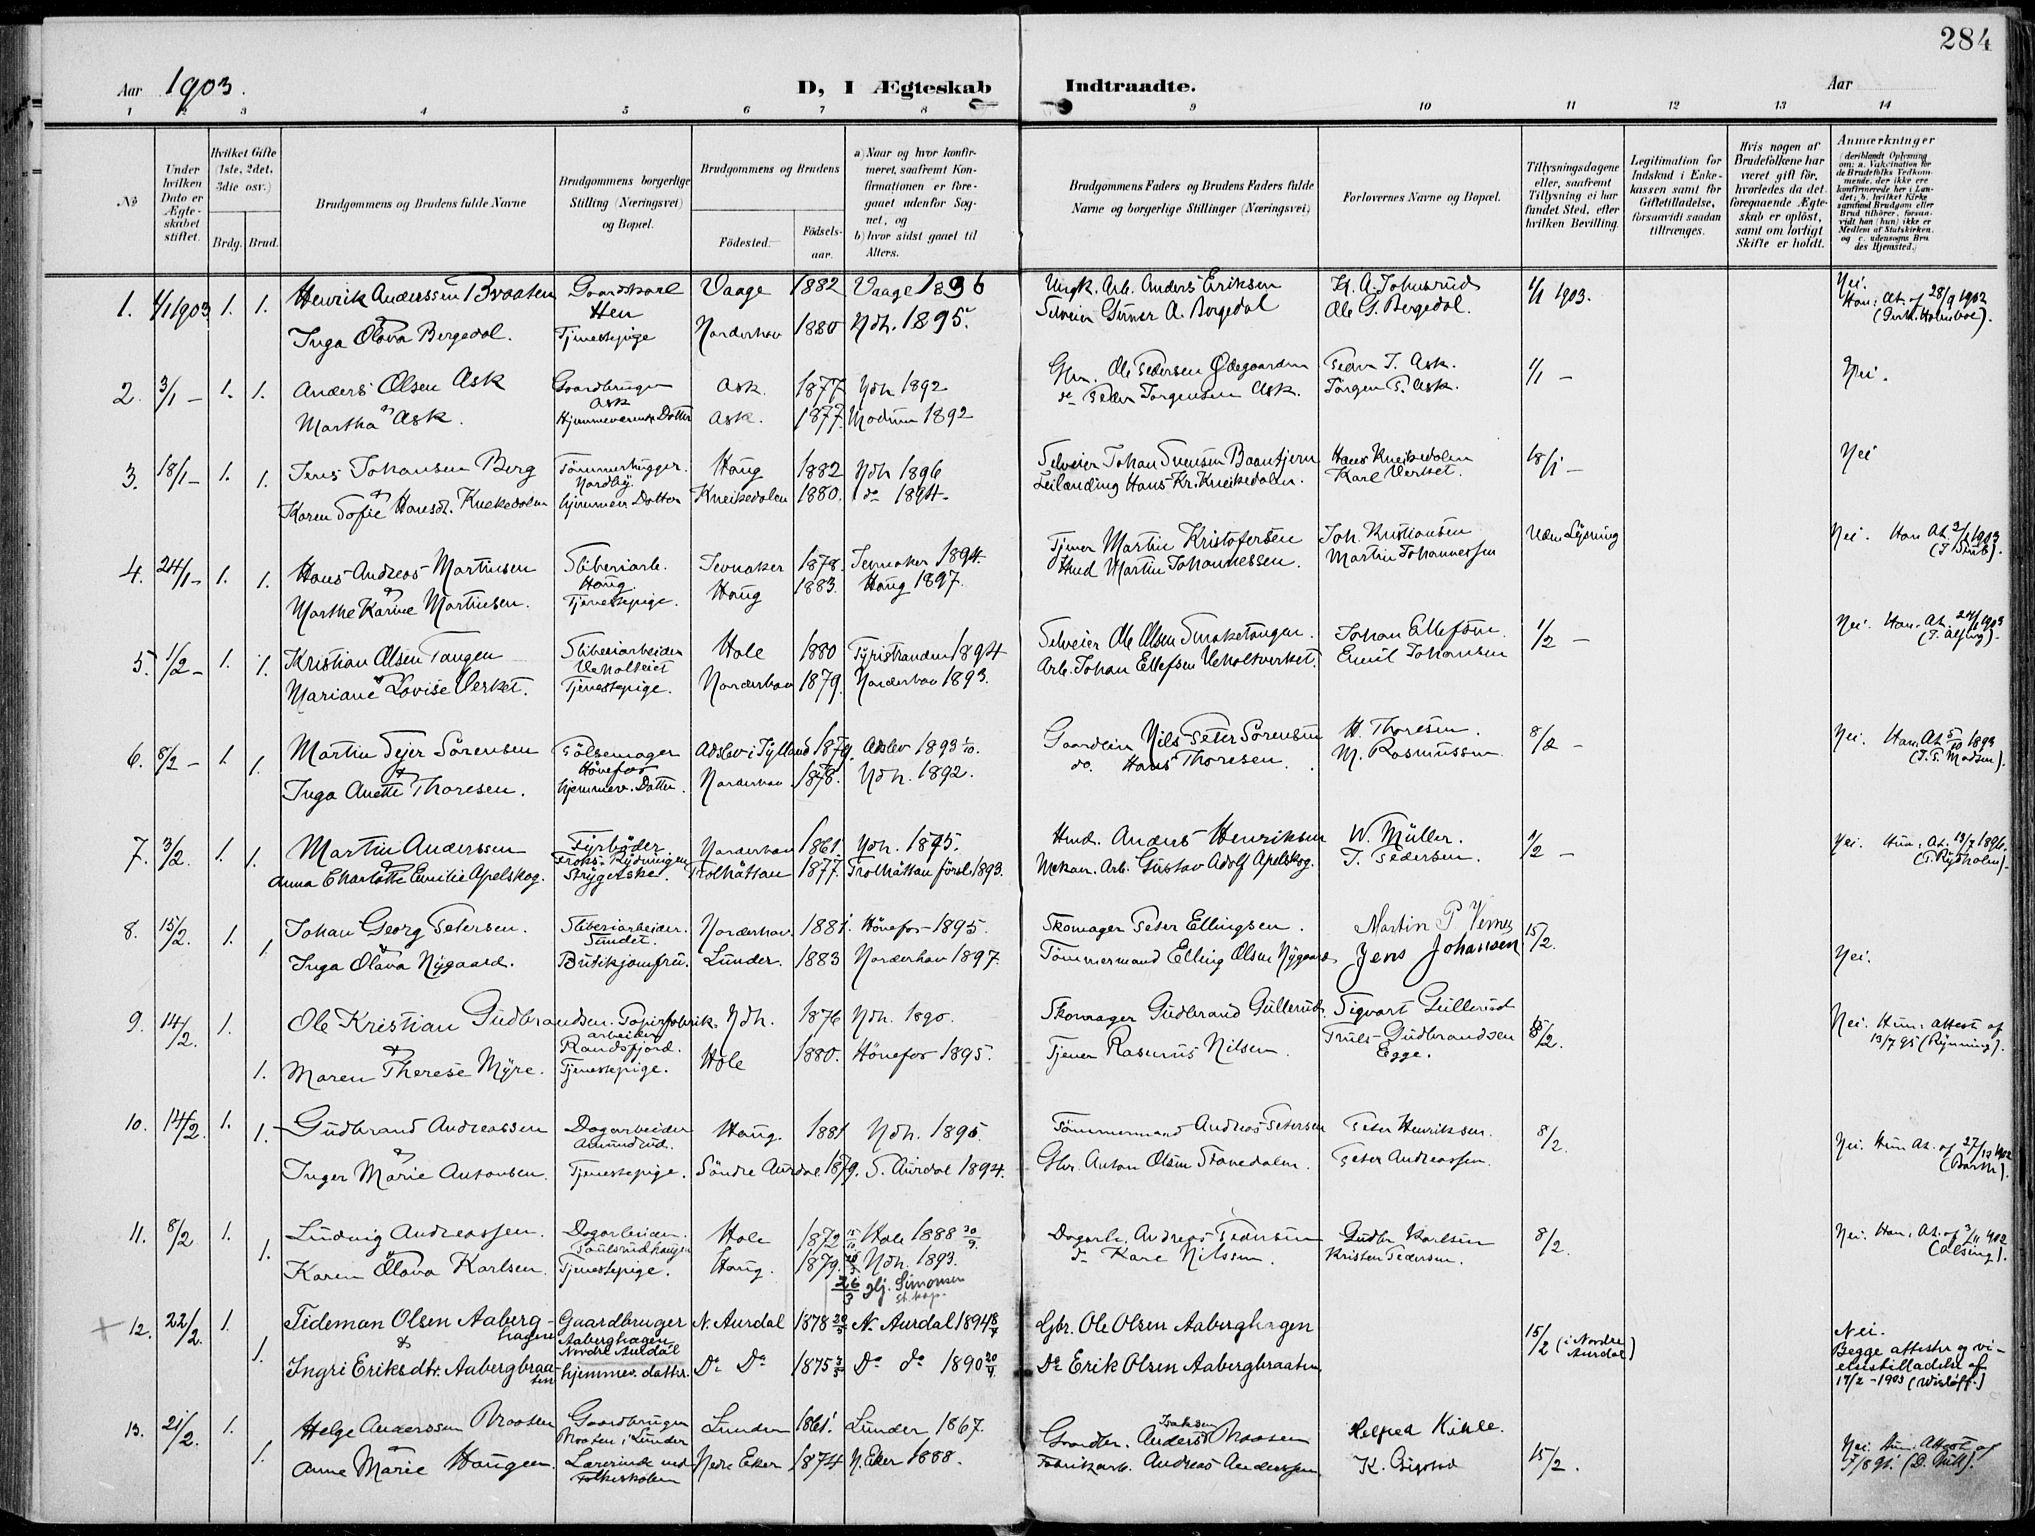 284
Aar 1903. D, I Ægteskab Indtraadte. Aar
1 2 3 4 5 6 7 8 9 10 11 12 13 14
№
Under hvilken Dato er Ægteskabet stiftet.
Hvilket Gifte (1ste, 2det, 3die osv.)
Brdg. Brud.
Brudgommens og Brudens fulde Navne
Brudgommens borgerlige Stilling (Næringsvei) og Bopæl.
Brudgommens og Brudens
Fødested.
Fødselsaar.
a) Naar og hvor konfirmeret, saafremt Konfirmationen er foregaaet udenfor Sognet, og
b) hvor sidst gaaet til Alters.
Brudgommens Faders og Brudens Faders fulde Navne og borgerlige Stillinger (Næringsvei)
Forlovernes Navne og Bopæl.
Tillysningsdagene eller, saafremt Tillysning ei har fundet Sted, efter hvilken Bevilling.
Legitimation for Indskud i Enkekassen samt for Giftetilladelse, forsaavidt saadan tiltrænges.
Hvis nogen af Brudefolkene har været gift før, hvorledes da det foregaaende Ægteskab er opløst, samt om lovligt Skifte er holdt.
Anmærkninger
(deriblandt Oplysning om: a. Vakcination for de Brudefolks Vedkommende, der ikke ere konfirmerede her i Landet; b. hvilket Kirkesamfund Brudgom eller Brud tilhører, forsaavidt han (hun) ikke er Medlem af Statskirken, og c. udensogns Brudes Hjemsted.)
1. 1/1 1903 1. 1. Henrik Anderssen Braaten Gaardskarl Hen Vaage 1882 Vaage 1896 Ungk. Arb. Anders Eriksen H. A. Johnsrud 1/1 1903. Nei. Han: At. af 28/9 1902
Inga Olava Bergedal. Tjenestepige Norderhov 1880 Ndh. 1895. Selveier Gunner A. Bergedal Ole G. Bergedal.
2. 3/1 – 1. 1. Anders Olsen Ask Gaardbruger Ask Ask. 1877 Ndh 1892 Gbr. Ole Pedersen Ødegaarden Peder J. Ask. 1/1 – Nei.
Martha Ask. Hjemmeværende Dotter Ask. 1877. Modum 1892 do Peder Jørgensen Ask. Jørgen P. Ask.
3. 18/1 – 1. 1. Jens Johansen Berg Tømmerhugger. Nordby. Haug 1882 Ndh 1896 Selveier Johan Svensen Baantjern Hans Kneikedalen 18/1 – Nei
Karen Sofie Hansdt. Knekedalen hjemmev. Dotter Kneikedalen 1880. do 1894. Leilænding Hans Kr. Kneikedalen. Karl Verket.
4. 24/1 – 1. 1. Hans Andreas Martinsen Sliberiarb. Haug Jevnaker 1878. Jevnaker 1894. Tjener Martin Kristofersen Joh. Kristiansen Uden Lysning Nei. Han At. 2/1 1903
Marthe Karine Martinsen. Tjenestepige. Haug 1883. Haug 1897. Hmd Martin Johannessen. Martin Johannessen
5. 1/2 – 1. 1. Kristian Olsen Tangen Sliberiarbeider Hole 1880 Tyristranden 1894 Selveier Ole Olsen Smaketangen. Johan Ellefsen. 1/2 – Nei. Han. At. 24/1 1903
Mariane Lovise Verket. Tjenestepige. Norderhov 1879. Norderhov 1893. Arb. Johan Ellefsen Veholtverket. Emil Johansen
6. 8/2 – 1 1. Martin Tejer Sørensen Pølsemager Hønefos Adslev i Jylland 1879. Adslev 1893 1/10. Gaardeier Nils Peter Sørensen H. Thoresen. 8/2 – Nei. Han. At 5/10 1893 (J. P. Madsen).
Inga Anette Thoresen. hjemmev. Datter. Norderhov 1878. Ndh. 1892. do. Hans Thoresen. M. Rasmussen
7. 3/2. 1. 1. Martin Anderssen Fyrbøder Norderhov 1861 Ndh. 1875. Hmd. Anders Henriksen W. Müller. 1/2 – Nei. Hun. At. 13/7 1896.
Anna Charlotte Emilie Apelskog. Strygerske. Trolhättan 1877. Trolhättan försl. 1893. Mekan. Arb. Gustav Adolf Apelskog. J. Pedersen.
8. 15/2. 1. 1. Johan Georg Petersen. Sliberiarbeider. Sundet. Norderhov. 1881. Hønefos 1895. Skomager Peter Ellingsen. Martin P Verne 15/2.
Inga Olava Nygaard. Butikjomfru. Lunder. 1883 Norderhov 1897. Tømmermand Elling Olsen Nygaard Jens Johansen Nei.
9. 14/2. 1. Ole Kristian Gudbrandsen. Papirfabrikarbeider Randsfjord. Ndh. 1876 Ndh. 1890. Skomager Gudbrand Gullerud. Sigvart Gullerud 8/2. Nei. Hun. attest af 13/7 95 (Rynning).
1. Maren Therese Myre. Tjenestepige. Hole 1880. Hønefos 1895. Tjener Rasmus Nilsen. Truls Gudbrandsen Egge.
10. 14/2. 1. 1. Gudbrand Andreassen Dagarbeider Amundrud. Haug. 1881 Ndh. 1895. Tømmermand Andreas Petersen Peter Henriksen. 8/2. Nei. Hun At. af 27/12 1902 (Barth).
Inger Marie Antonsen. Tjenestepige. Søndre Aurdal 1879. S. Aurdal 1894. Gbr. Anton Olsen Stavedalen. Peter Andreassen.
11. 8/2 1. 1. Ludvig Andreassen. Dagarbeider. Hole 1872 Hole 1888 30/9 Dagarb. Andreas Pedersen Gudbr Karlsen 8/2. Nei. Han. At. af 3/11 902 (Alsing).
Karen Olava Karlsen. Tjenestepige. Haug. 1879. Ndh. 1893. do Kare Nilssen. Kristen Pedersen.
26/3 gj. Simonsen
12. 22/2. 1. 1. Tideman Olsen Aaberghagene Gaardbruger Aaberghagen Nordre Aurdal N. Aurdal 1878 N. Aurdal 1894 Gbr. Ole Olsen Aaberghagen 15/2 (i Nordre Aurdal) Nei. Begge attester og vielsestilladelse af 17/2 – 1903 (Wisløff.)
& Ingri Eriksdtr. Aabergbraaten hjemmev. datter. Do Do 1875 Do do 1890 Do Erik Olsen Aabergbraaten
13. 21/2. 1. 1. Helge Anderssen Braaten Gaardbruger Braaten i Lunder Lunder 1861. Lunder 1867. Gaardbr. Anders Isaksen Braaten Helfred Kihle. 15/2. Nei. Hun. Attest af
Anne Marie Haugen. Lærerinde ved Folkeskolen Nedre Eker 1874 N. Eker 1888. Fabrikarb. Andreas Anderssen K. Opstad